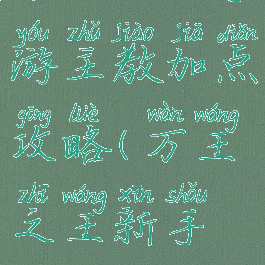 yóu zhǔ jiào jiā diǎn
游主教加点
gōng lüè wàn wáng
攻略(万王
zhī wáng xīn shǒu
之王新手